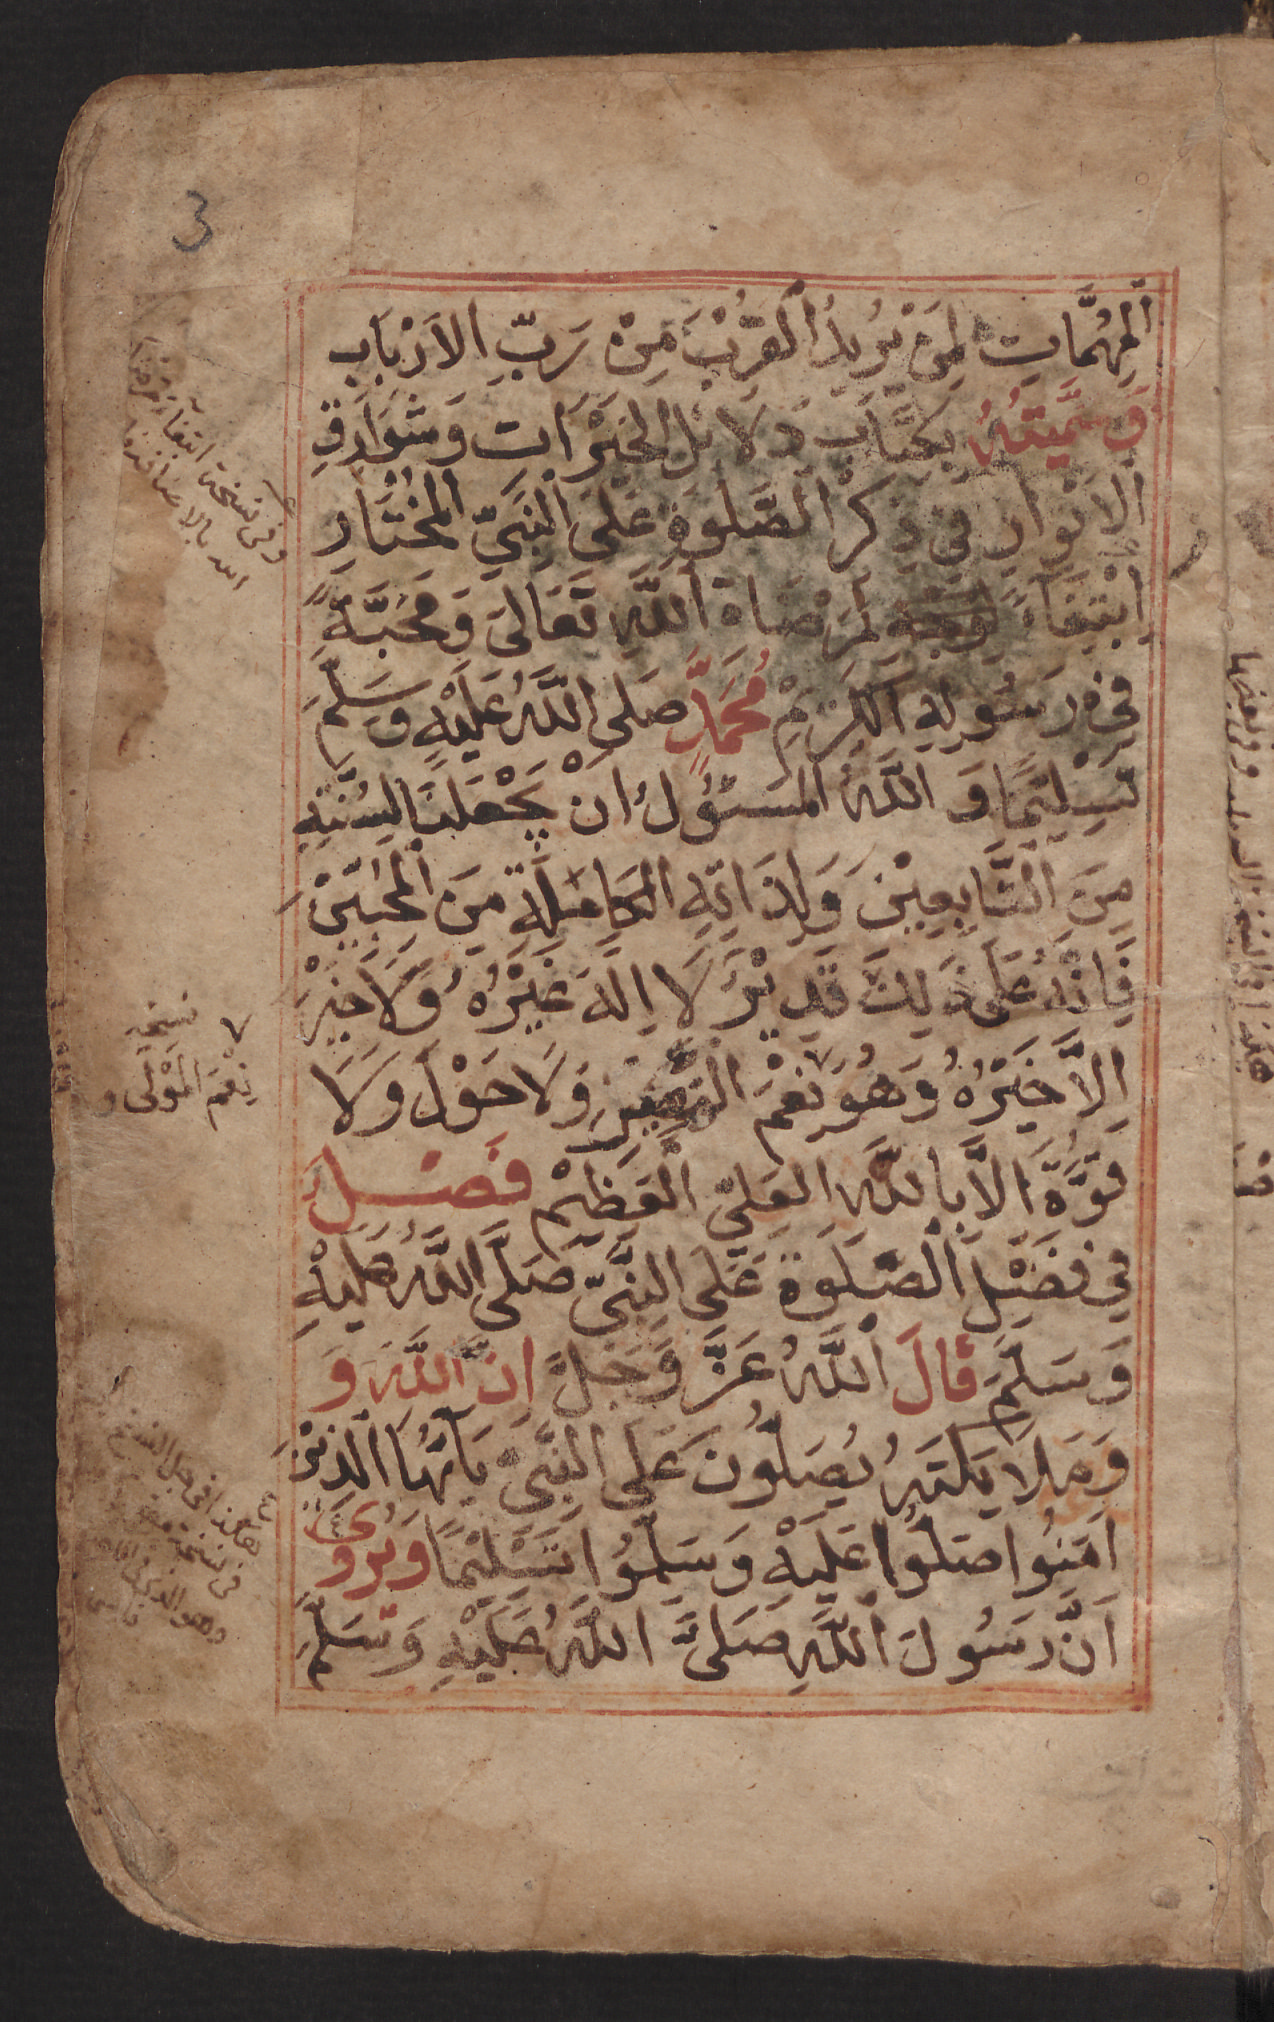 3
اَلْمُهِمَّاتِ لِمَنْ يُرِيْدُ الْقُرْبَ مِنْ رَبِّ الاَرْبَابِ
وَسَمَّيْتُهُ بِكِتَابِ دَلَائِلِ الْخَيْرَاتِ وَشَوَارِقِ
الْاَنْوَارِ فِي ذِكْرِ الصَّلٰوةِ عَلَى النَّبِيِّ الْمُخْتَارِ
اِبْتِغَآءً لِمَرْضَاةِ اللّٰهِ تَعَالٰى وَمَحَبَّةً
فِيْ رَسُوْلِهِ الْكَرِيْمِ مُحَمَّدٍ صَلَى اللّٰهُ عَلَيْهِ وَسَلَّمَ
تَسْلِيْمًا وَ اللّٰهُ الْمَسْئُوْلُ اَنْ يَجْعَلَنَا لِسُنَّتِهِ
مِنَ التَّابِعِيْنَ وَلِذَاتِهِ الْكَامِلَةِ مِنَ الْمُحِبِّيْنَ
فَاِنَّهُ عَلٰى ذٰلِكَ قَدِيْرٌ لَا اِلٰهَ غَيْرُهُ وَلَا خَيْرَ
اِلَّا خَيْرُهُ وَهُوَ نِعْمَ النَّصِيْرُ وَلَا حَوْلَ وَلَا
قُوَّةَ اِلَّا بِاللّٰهِ الْعَلِيِّ الْعَظِيْمِ فَصْل
فِي فَضْلِ الصَّلٰوةِ عَلَى النَّبِيِّ صَلَّى اللّٰهُ عَلَيْهِ
وَسَلَّمَ قَالَ اللّٰهُ عَزَّ وَجَلَّ اِنَّ اللّٰهَ وَ
وَمَلَا يِكَتَهُ يُصَلُّوْنَ عَلَى النَّبِيِّ يَآ اَيُّهَا الَّذِيْنَ
اٰمَنُوا صَلُّوا عَلَيْهِ وَسَلِّمُوْا تَسْلِيْمًا وَيُرْوٰى
اَنَّ رَسُوْلَ اللّٰهِ صَلَّى اللّٰهُ عَلَيْهِ وَسَلَّمَ
وفي نسخة ابتغاء مرضاة
الله بالاضافة
نسخه
نِعْمَ الْمَوْلٰى و
هكذا في جل النسخ
في نسخة